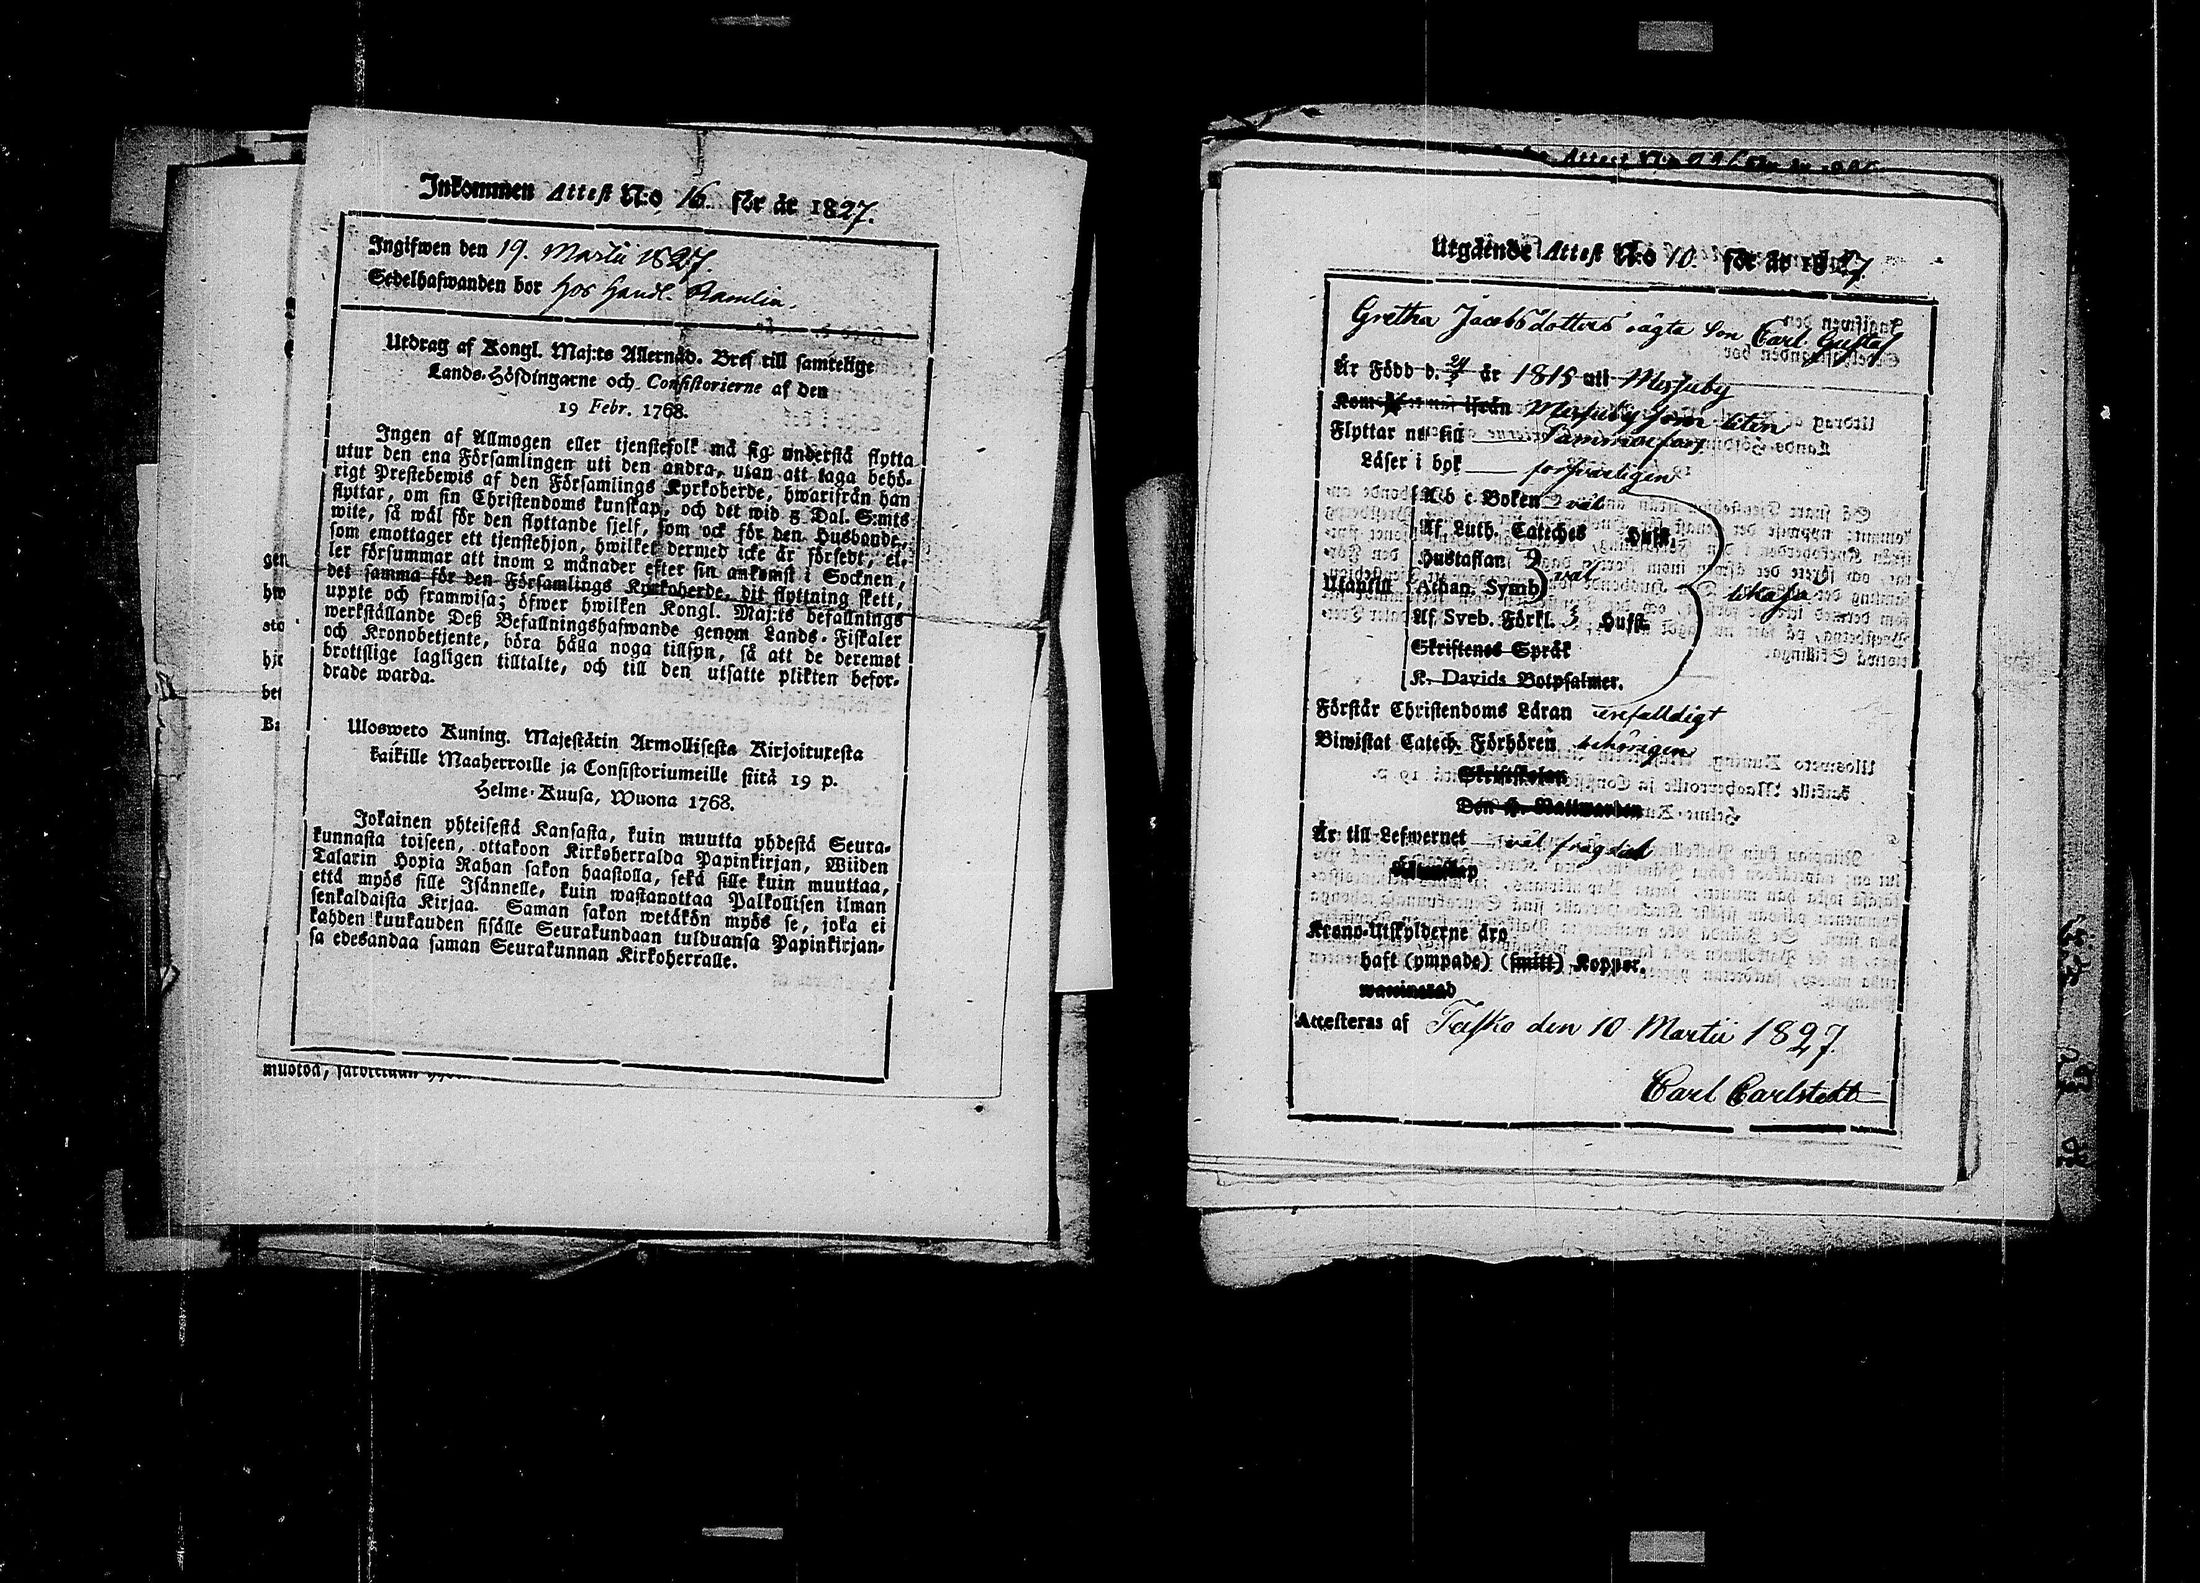 Inkommen Attest N:o 16. för år 1827.
Ingifwen den 19. Martii 1827.
Sedelhafwanden bor hos Handl. Ramlin.
Utdrag af Kongl. Maj:ts Allernåd. Bref till samtelige
Lands-Höfdingarne och Consistorierne af den
19 Febr. 1768.
Ingen af Allmogen eller tjenstefolk må sig understå flytta
utur den ena Församlingen uti den andra, utan att taga behö-
rigt Prestebewis af den Församlings Kyrkoherde, hwarifrån han
flyttar, om sin Christendoms kunskap, och det wid 5 Dal. S:mts
wite, så wäl för den flyttande sjelf, som ock för den Husbonde,
som emottager ett tjenstehjon, hwilket dermed icke är försedt, el-
ler försummar att inom 2 månader efter sin ankomst i Socknen,
det samma för den Församlings Kyrkoherde, dit flyttning skett,
uppte och framwisa; öfwer hwilken Kongl. Maj:ts befallnings
werkställande Deß Befallningshafwande genom Lands-Fiskaler
och Kronobetjente, böra hålla noga tillsyn, så att de deremot
brottslige lagligen tilltalte, och till den utsatte plikten befor-
drade warda.
Ulosweto Kuning. Majestätin Armollisesta Kirjoituxesta
kaikille Maaherroille ja Consistoriumeille siitä 19 p.
Helme-Kuusa, Wuona 1768.
Jokainen yhteisestä Kansasta, kuin muutta yhdestä Seura-
kunnasta toiseen, ottakoon Kirkoherralda Papinkirjan, Wiiden
Talarin Hopia Rahan sakon haastolla, sekä sille kuin muuttaa,
että myös sille Isännelle, kuin wastanottaa Palkollisen ilman
senkaldaista Kirjaa. Saman sakon wetäkön myös se, joka ei
kahden kuukauden sisälle Seurakundaan tulduansa Papinkirjan-
sa edesandaa saman Seurakunnan Kirkoherralle.
Utgående Attest N:o 10. för år 1827
Gretha Jacobsdotters oägta son Carl Gustaf
Är Född d. 24 år 1815 uti Merjuby
Kom ifrån som liten
Flyttar nu till
Läser i bok försvarligen
A b c Boken väl
Af Luth. Cateches Hufst.
Hustaflan
Utantill Athan. Symb väl
Af Sveb. Förkl. 3 Hufst.
Skriftenes Språk
K. Davids Botpsalmer.
Förstår Christendoms Läran enfalldigt
Biwistat Catech. Förhören behörigen
Skriftskolan
Den H. Nattwarden
Är till Lefwernet väl frägdad
Krono-Utskylderne äro
haft (ympade) (smitt) Koppor.
Attesteras af den 10 Martii 1827.
Carl Carlstedt